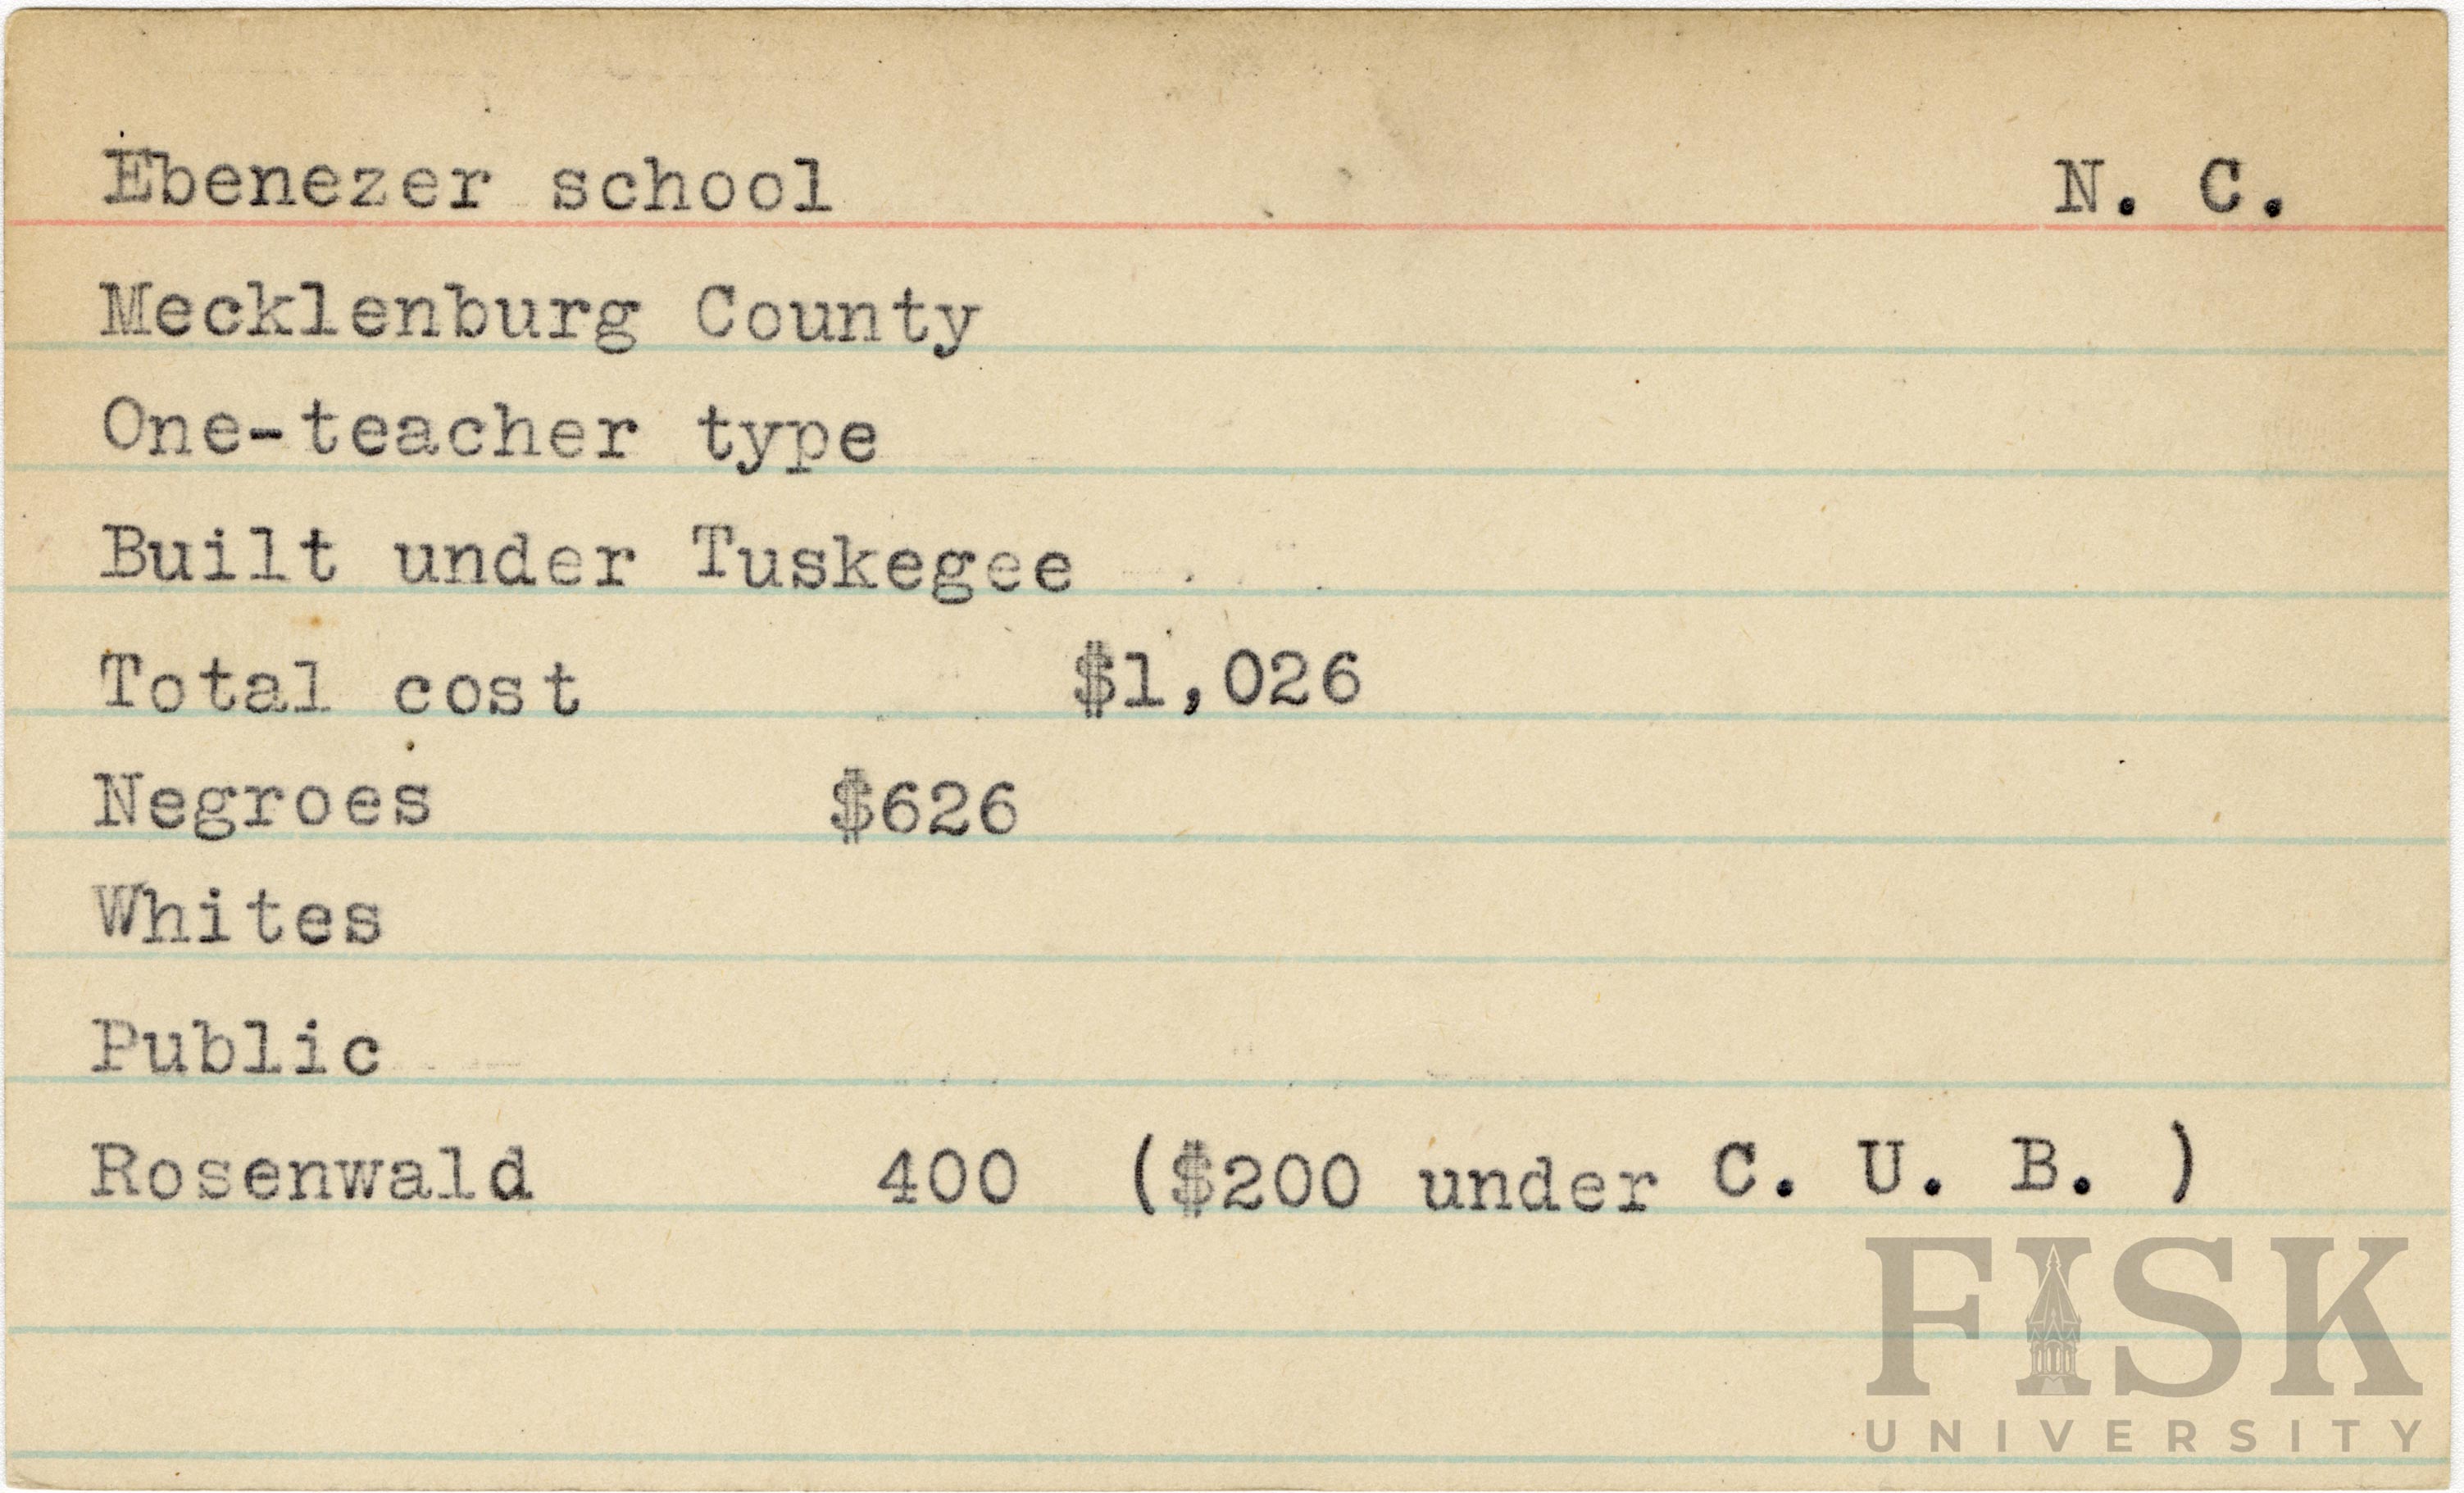 Ebenezer school N. C.
Mecklenburg County
One-teacher type
Built under Tuskegee
Total cost $1,026
Negroes $626
Whites
Public
Rosenwald 400 ($200 under C. U. B. )
FISK
UNIVERSITY